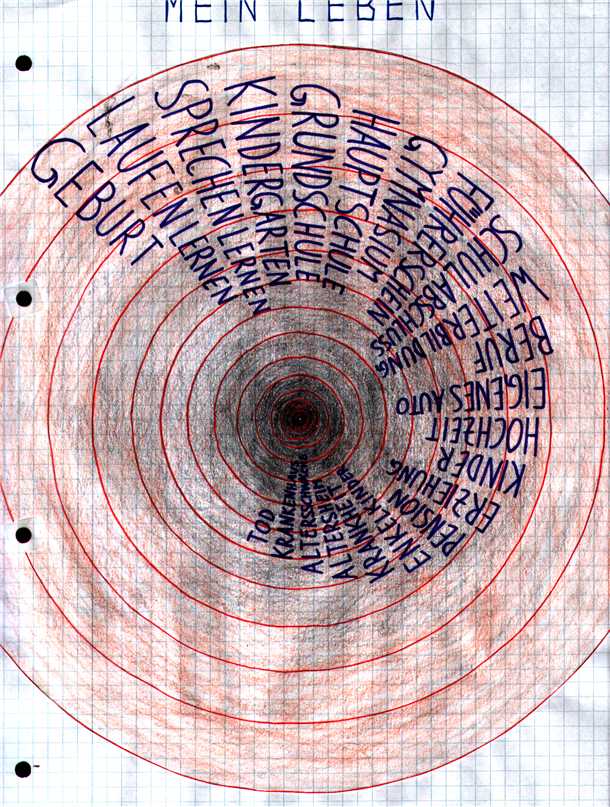 MEIN LEBEN
GEBURT
LAUFEN LERNEN
SPRECHEN LERNEN
KINDERGARTEN
GRUNDSCHULE
HAUPTSCHULE
GYMNASIUM
FÜHRERSCHEIN
SCHULABSCHLUSS
WEITERBILDUNG
BERUF
EIGENES AUTO
HOCHZEIT
KINDER
ERZIEHUNG
PENSION
ENKELKINDER
KRANKHEIT
ALTERSHEIM
ALTERSSCHWÄCHE
KRANKENHAUS
TOD